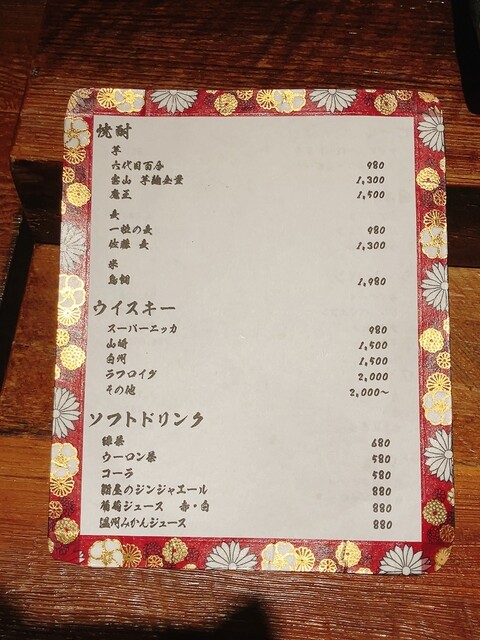 焼酎
芋
六代目百合 980
富山 芋麹全量 1,300
魔王 1,500
麦
一粒の麦 980
佐藤 麦 1,300
米
鳥飼 1,980
ウイスキー
スーパーニッカ 980
山崎 1,500
白州 1,500
ラフロイグ 2,000
その他 2,000〜
ソフトドリンク
緑茶 680
ウーロン茶 580
コーラ 580
のジンジャエール 880
葡萄ジュース 赤・白 880
温州みかんジュース 880